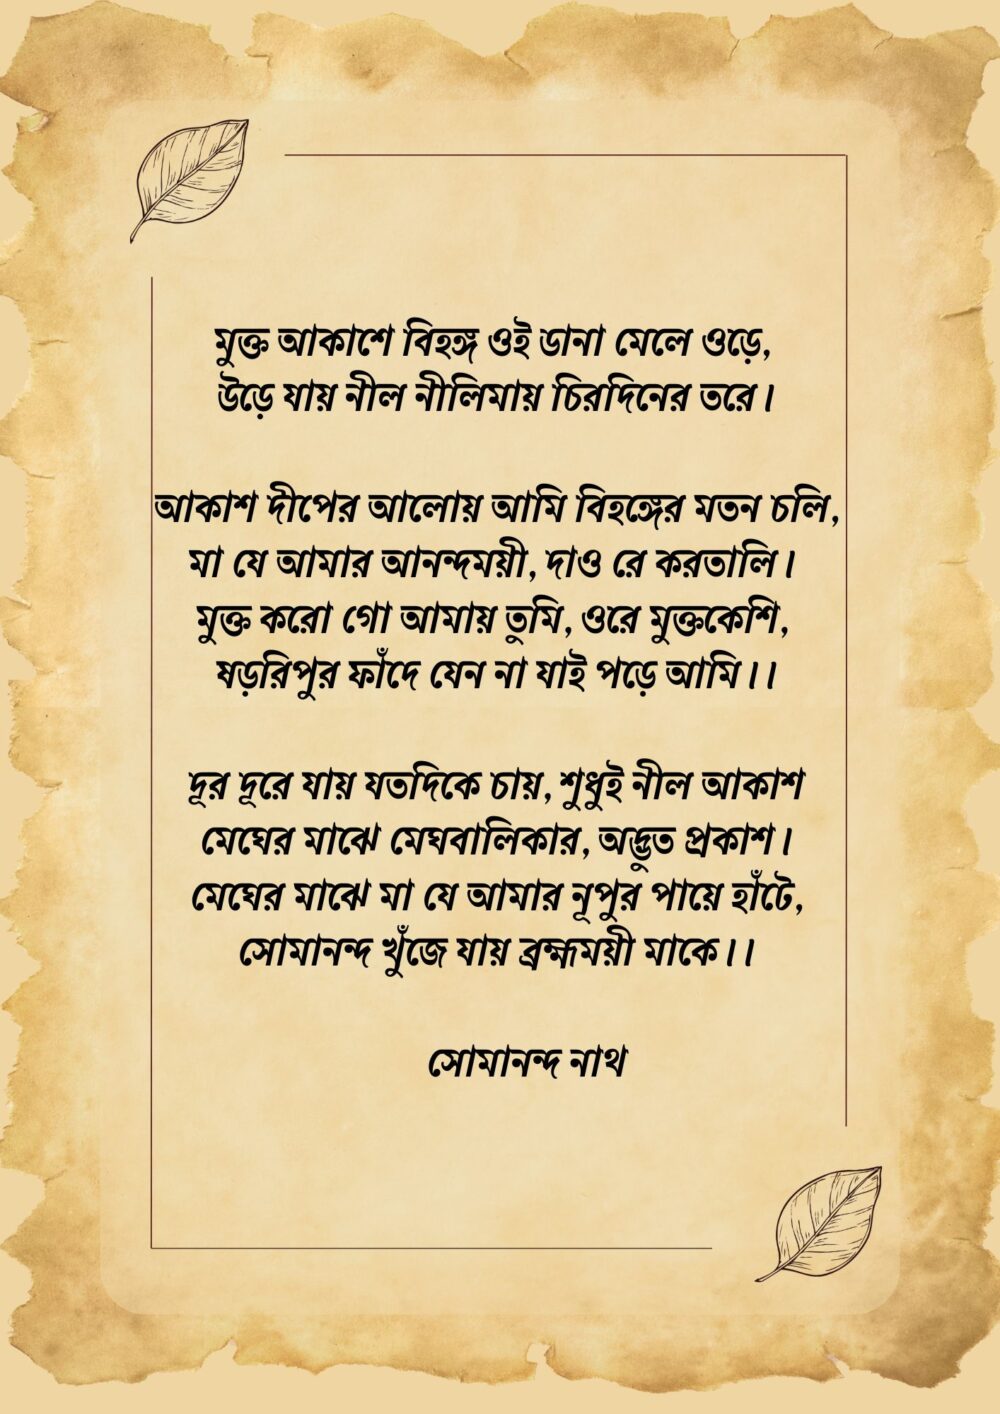 মুক্ত আকাশে বিহঙ্গ ওই ডানা মেলে ওড়ে,
উড়ে যায় নীল নীলিমায় চিরদিনের তরে।
আকাশ দীপের আলোয় আমি বিহঙ্গের মতন চলি,
মা যে আমার আনন্দময়ী, দাও রে করতালি।
মুক্ত করো গো আমায় তুমি, ওরে মুক্তকেশি,
ষড়রিপুর ফাঁদে যেন না যাই পড়ে আমি।।
দূর দূরে যায় যতদিকে চায়, শুধুই নীল আকাশ
মেঘের মাঝে মেঘবালিকার, অদ্ভুত প্রকাশ।
মেঘের মাঝে মা যে আমার নূপুর পায়ে হাঁটে,
সোমানন্দ খুঁজে যায় ব্রহ্মময়ী মাকে।।
সোমানন্দ নাথ